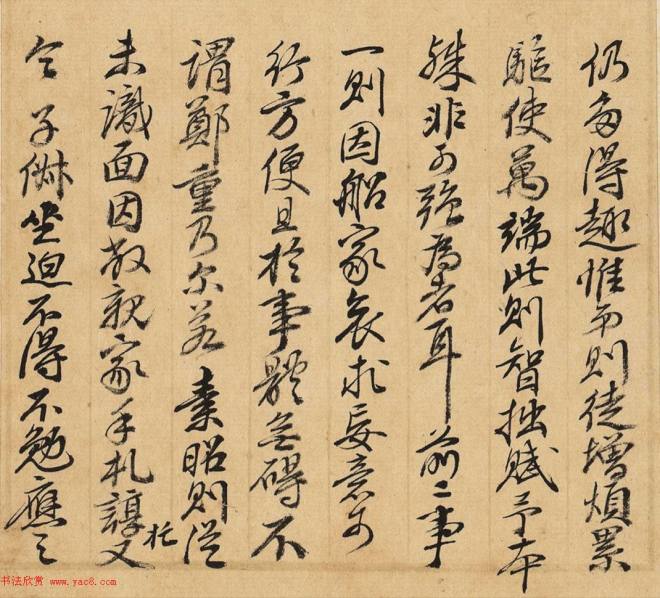 仍多得趣惟弟則徒增煩累
驅使萬端此則智拙賦予本
殊非可強為者耳前二事
一則因船家哀求妄意可
行方便且於事體無碍不
謂鄭重乃尔若素昭則從
未識面因敝親家手札諄又托
令子倅坐迫不得不勉應之
书法欣赏 www.yac8.com